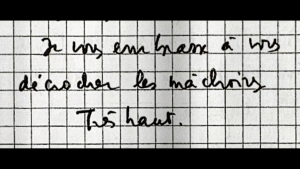 Je vous embrasse à vous
décrocher les mâchoires
Très haut.